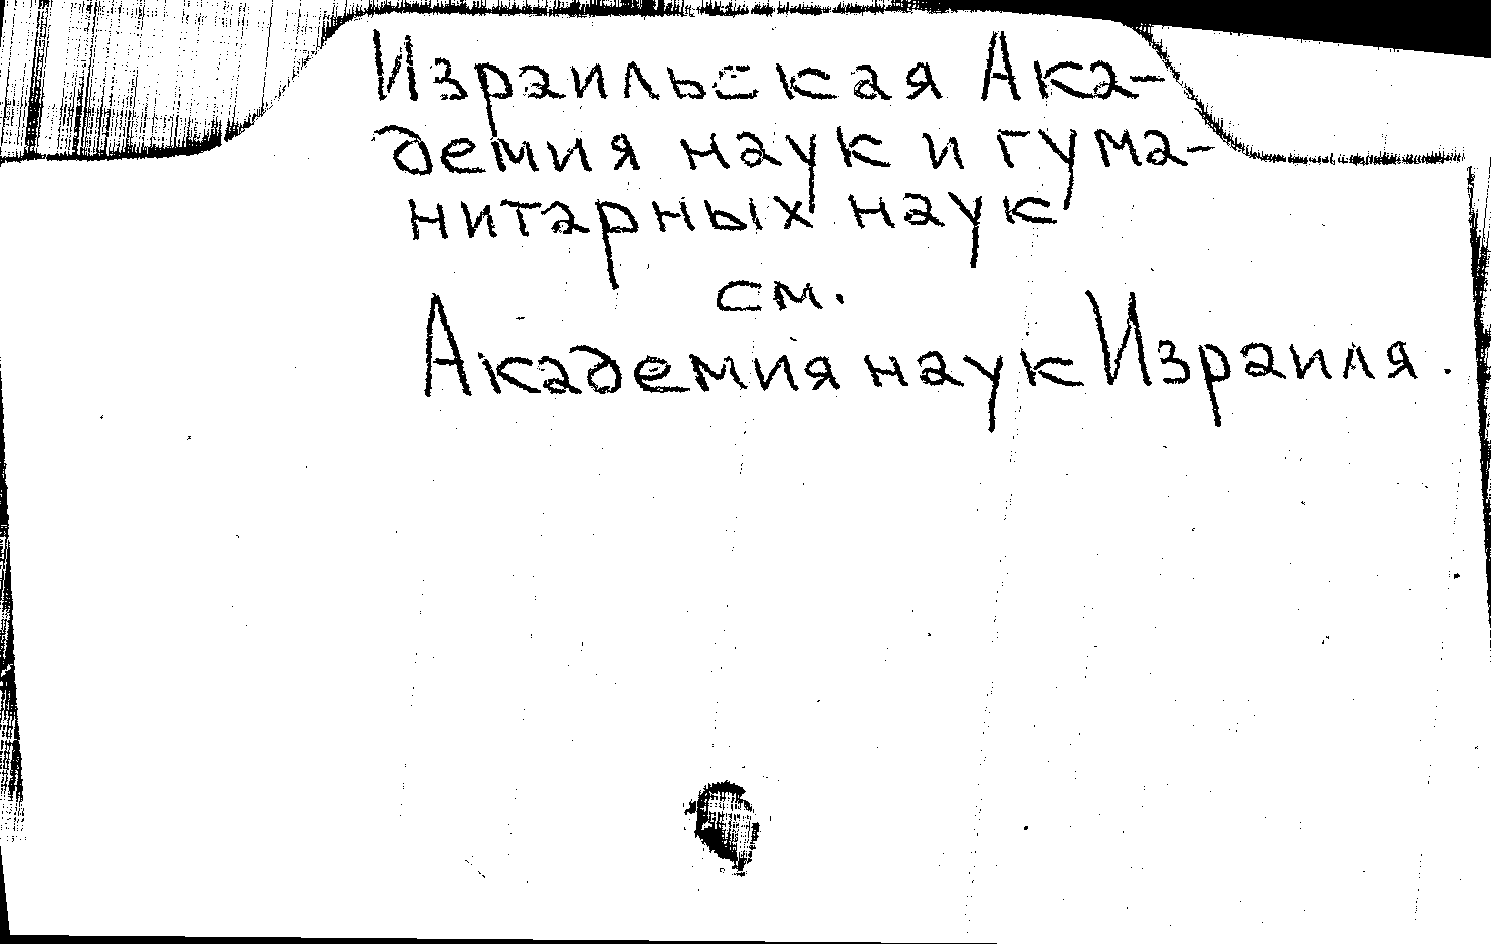 Израильская Ака-
демия наук и гума-
нитарных наук
см.
Академия наук Израиля.